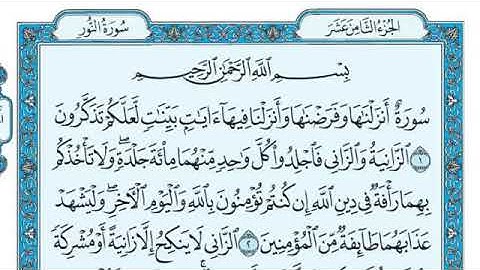 الجزء الثامن عشر
سورة النور
بِسْمِ اللَّهِ الرَّحْمَٰنِ الرَّحِيمِ
سُورَةٌ أَنزَلْنَٰهَا وَفَرَضْنَٰهَا وَأَنزَلْنَا فِيهَآ ءَايَٰتٍۭ بَيِّنَٰتٍ لَّعَلَّكُمْ تَذَكَّرُونَ
١ الزَّانِيَةُ وَالزَّانِي فَاجْلِدُوا۟ كُلَّ وَٰحِدٍ مِّنْهُمَا مِا۟ئَةَ جَلْدَةٍ ۖ وَلَا تَأْخُذْكُم
بِهِمَا رَأْفَةٌ فِي دِينِ اللَّهِ إِن كُنتُمْ تُؤْمِنُونَ بِاللَّهِ وَالْيَوْمِ الْأَخِرِ ۖ وَلْيَشْهَدْ
عَذَابَهُمَا طَآئِفَةٌ مِّنَ الْمُؤْمِنِينَ ٢ الزَّانِي لَا يَنكِحُ إِلَّا زَانِيَةً أَوْ مُشْرِكَةً